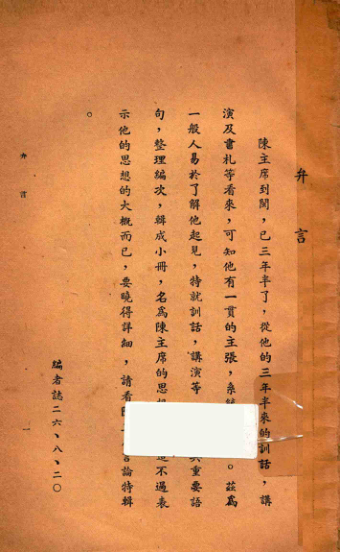 弁言
陳主席到閩,已三年半了,從他的三年半來的訓話,講
演及書札等看來,可知他有一貫的主張,系。茲為
一般人易於了解他起見,特就訓話,講演等重要語
句,整理編次,輯成小冊,名為陳主席的思不過表
示他的思想的大概而已,要曉得詳細,請看言論特輯
。
編者誌二六、八、二〇
弁言
一